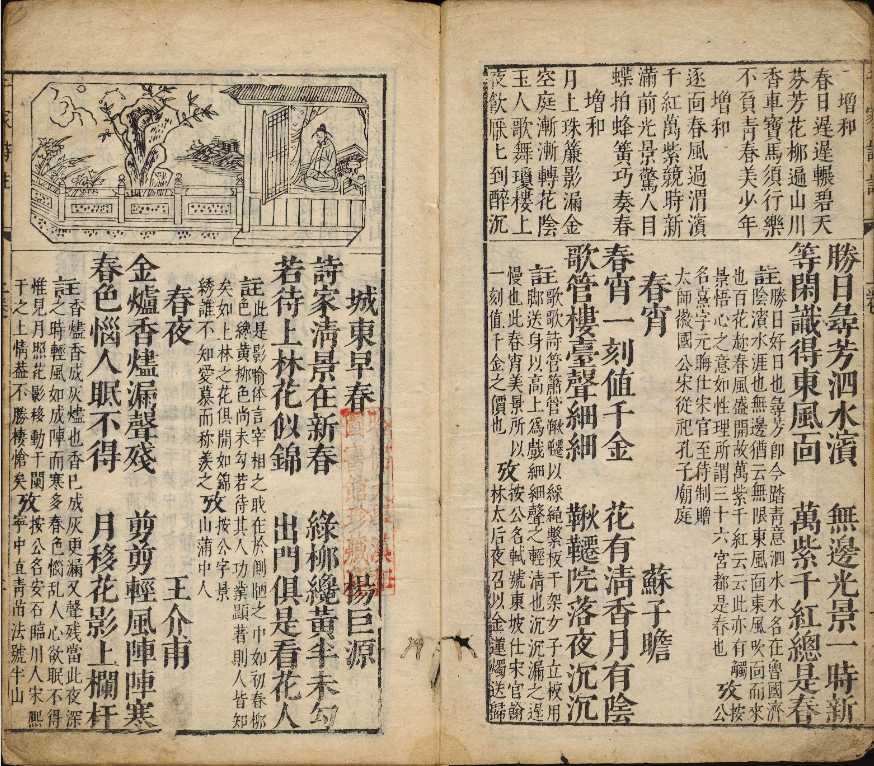 增和
春日遲遲輾碧天
芬芳花柳遍山川
香車寶馬須行樂
不負青春美少年
增和
逐面春風過渭濱
千紅萬紫競時新
滿前光景驚人目
蝶拍蜂簧巧奏春
增和
月上珠簾影漏金
空庭漸漸轉花陰
玉人歌舞瓊樓上
夜飲厭匕到醉沉
勝日尋芳泗水濱 無邊光景一時新
等閑識得東風面 萬紫千紅總是春
註勝日好日也尋芳即今踏青意泗水水名在魯國濟
陰濱水涯也無邊猶云無限東風面東風吹面而來
也百花趁春風盛開故萬紫千紅云云此亦有觸
景悟心之意如性理所謂三十六宮都是春也 攷按公
名熹字元晦仕宋官至待制贈
太師徽國公宋從祀孔子廟庭
春宵 蘇子瞻
春宵一刻值千金 花有清香月有陰
歌管樓臺聲細細 鞦韆院落夜沉沉
註歌歌詩管簫管鞦韆以綵繩繫板干架女子立板用
腳送身以高上爲戲細細聲之輕清也沉沉漏之遲
慢也此春宵美景所以 攷按公名軾號東坡仕宋官翰
一刻值千金之價也 林太后夜召以金蓮燭送歸
城東早春 楊巨源
詩家清景在新春 綠柳纔黃半未勻
若待上林花似錦 出門俱是看花人
註此是影喻体言宰相之職在於側陋之中如初春柳
色纔黃柳色尚未勻若待其人功業顯著則人皆知
矣如上林之花俱開如錦 攷按公字景
綉誰不知愛慕而称羡之 山蒲中人
春夜 王介甫
金爐香燼漏聲殘 剪剪輕風陣陣寒
春色惱人眠不得 月移花影上欄杆
註香燼香成灰燼也香已成灰更漏又聲残當此夜深
之時輕風如成陣而寒多春色惱乱人心欲眠不得
惟見月照花影移動于闌 攷按公名安石臨川人宋熙
干之上情盖不勝悽愴矣 寧中直青苗法號半山